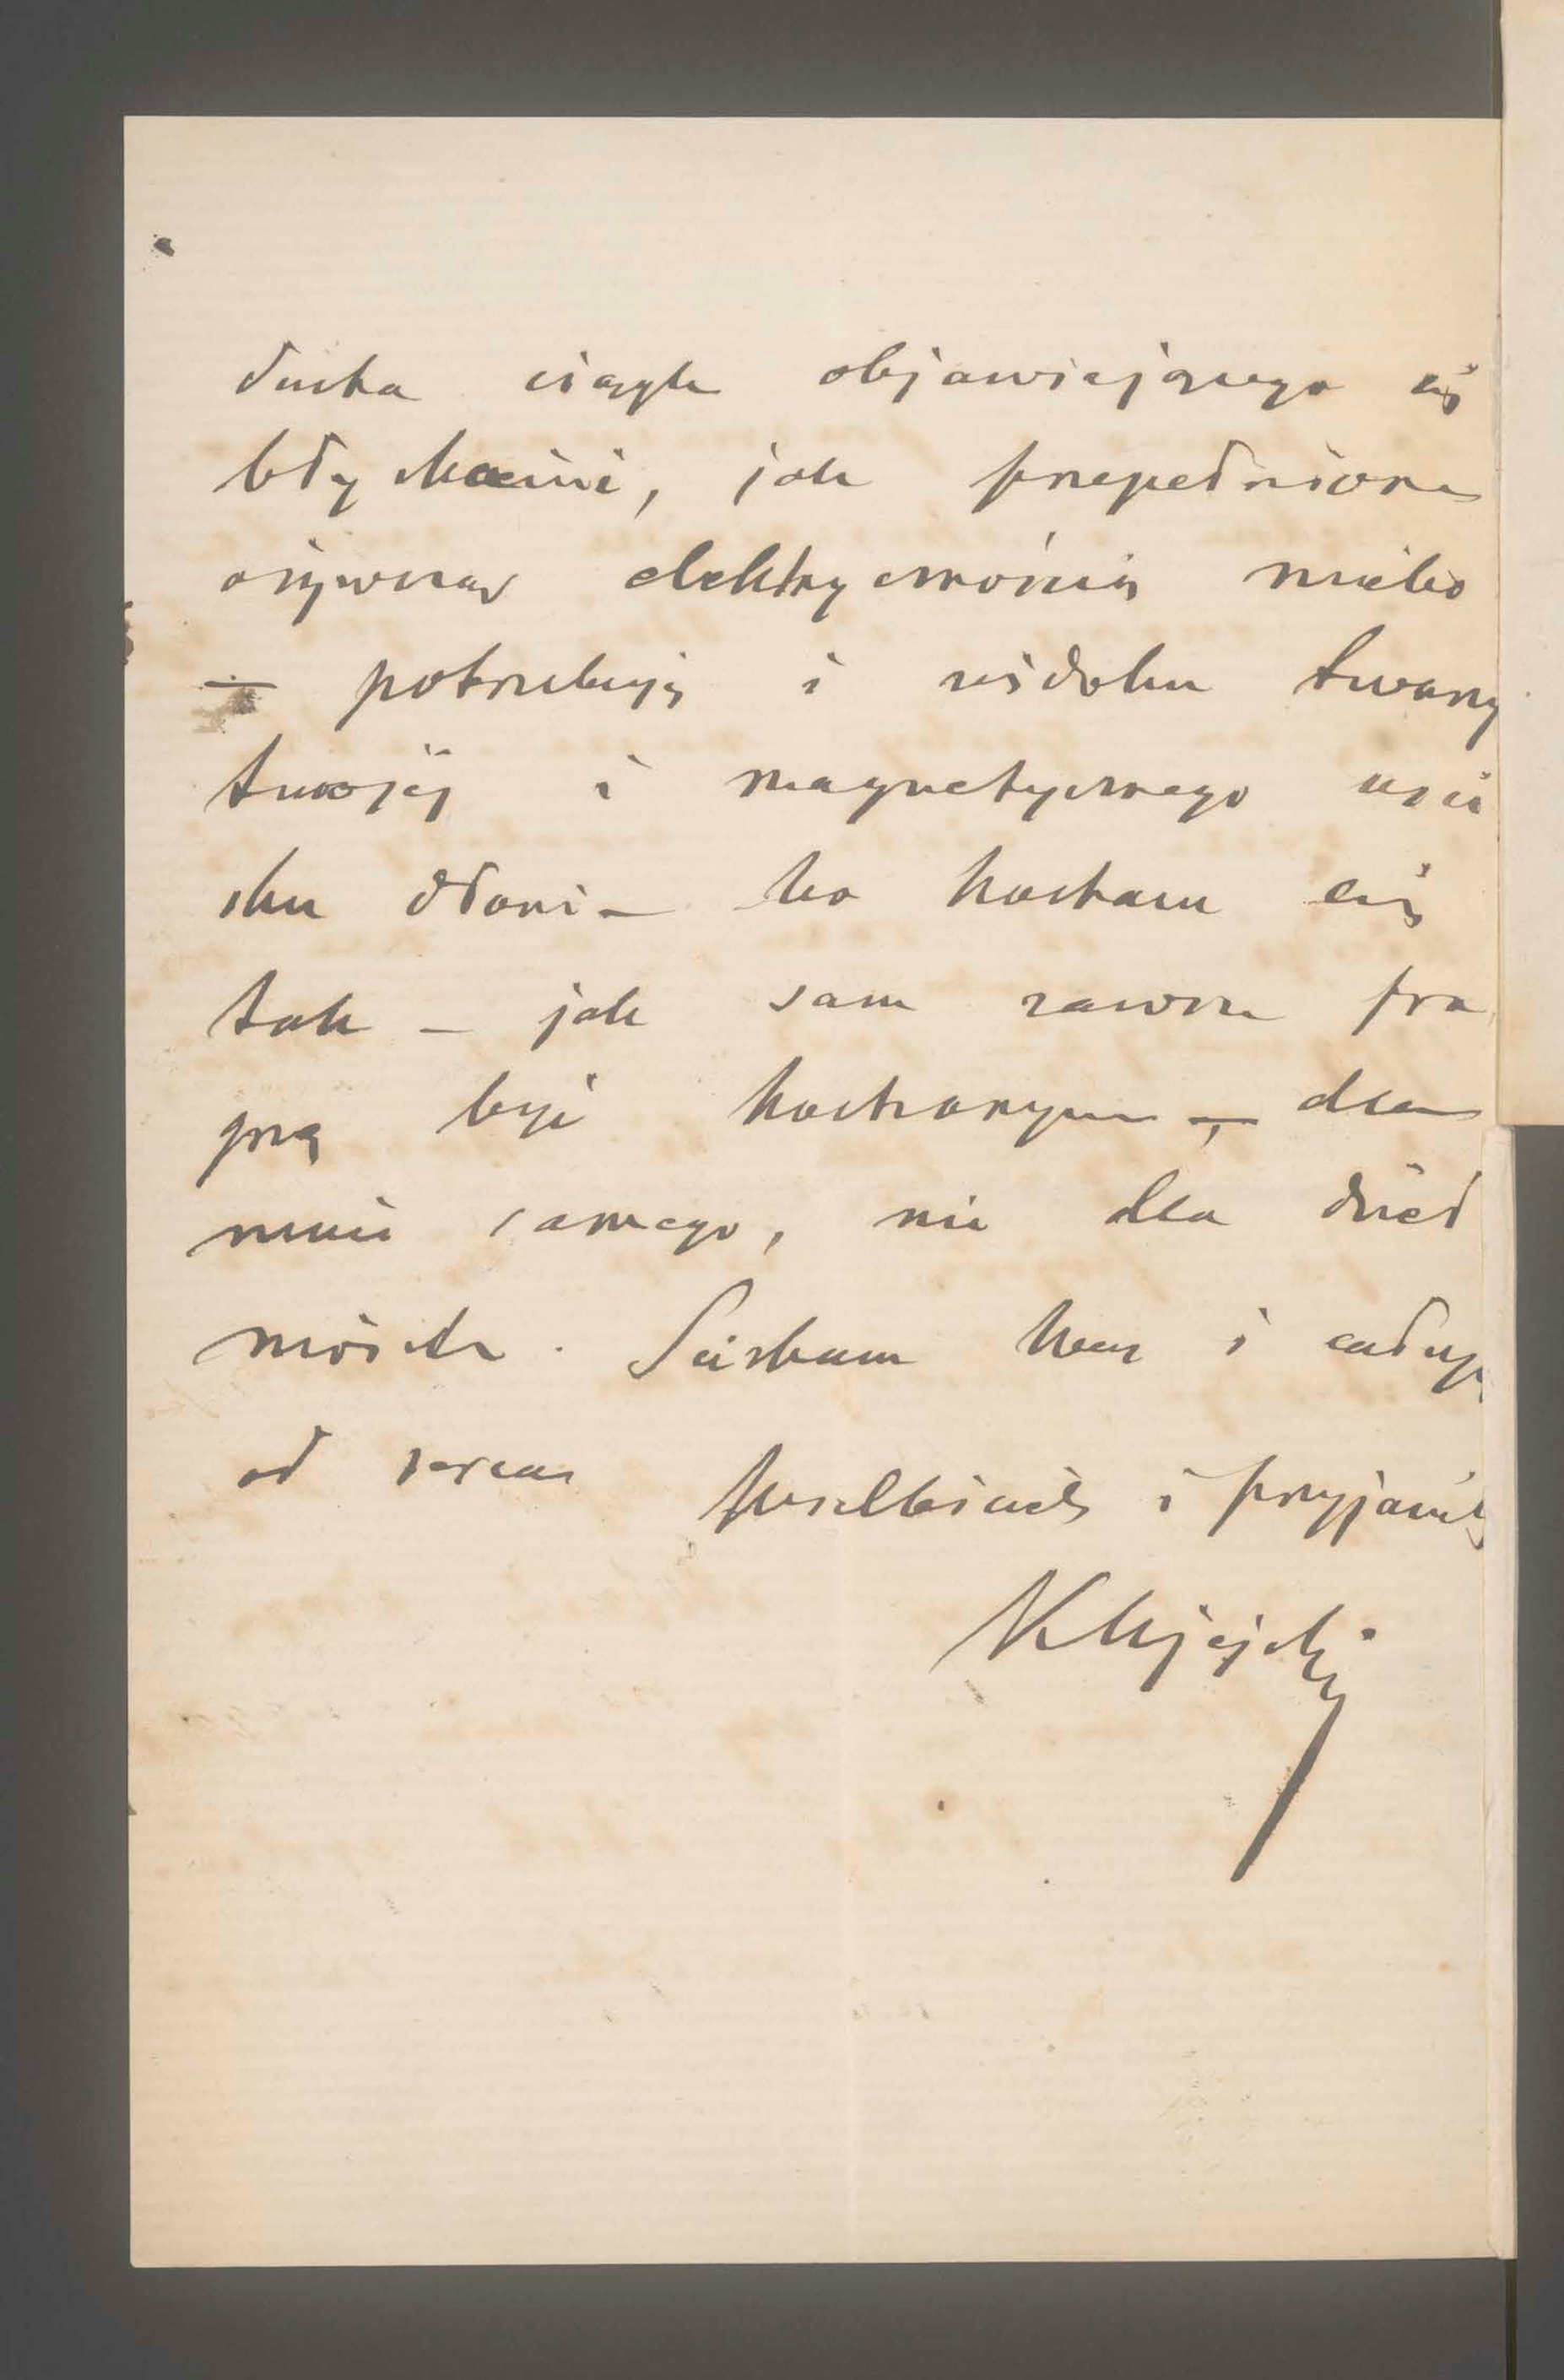 ducha ciągle objawiającego się
błyskami, jak przepełnione
ożywczą elektrycznością niebo
— potrzebuję i widoku twarzy
twojéj i magnetycznego uści
sku dłoni — bo kocham cię
tak — jak sam zawsze pra
gnę być kochanym —, dla
mnie samego, nie dla dzieł
moich. Ściskam was i całuję
od serca
wielbiciel i przyjaciel
KUjejski